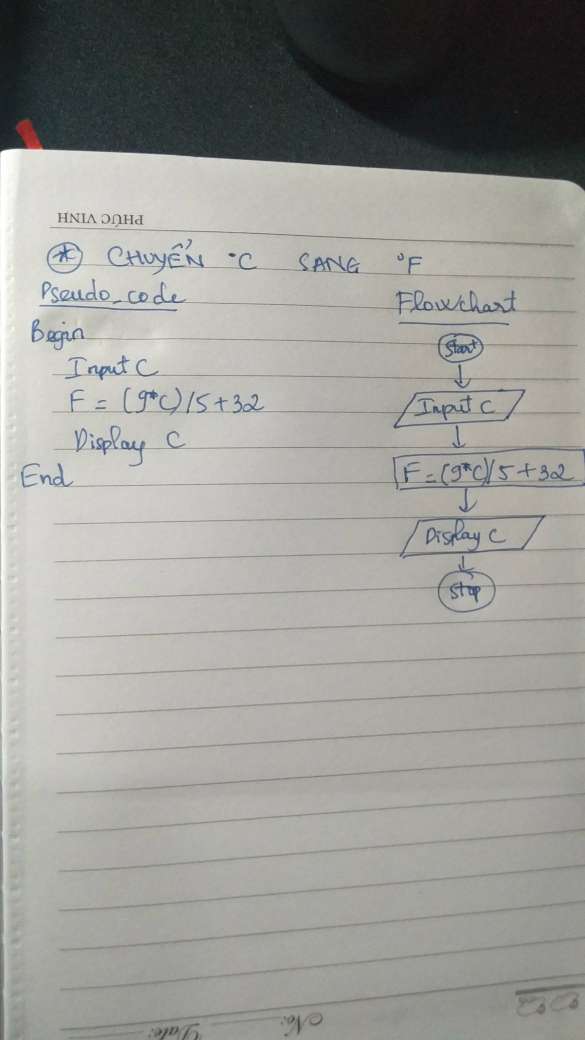 PHÚC VINH
* CHUYỂN °C SANG °F
Pseudo_code
Begin
Input C
F = (9*C)/5+32
Display C
End
Flowchart
Start
Input C
F=(9*C)/5+32
Display C
Stop
No:
Date: